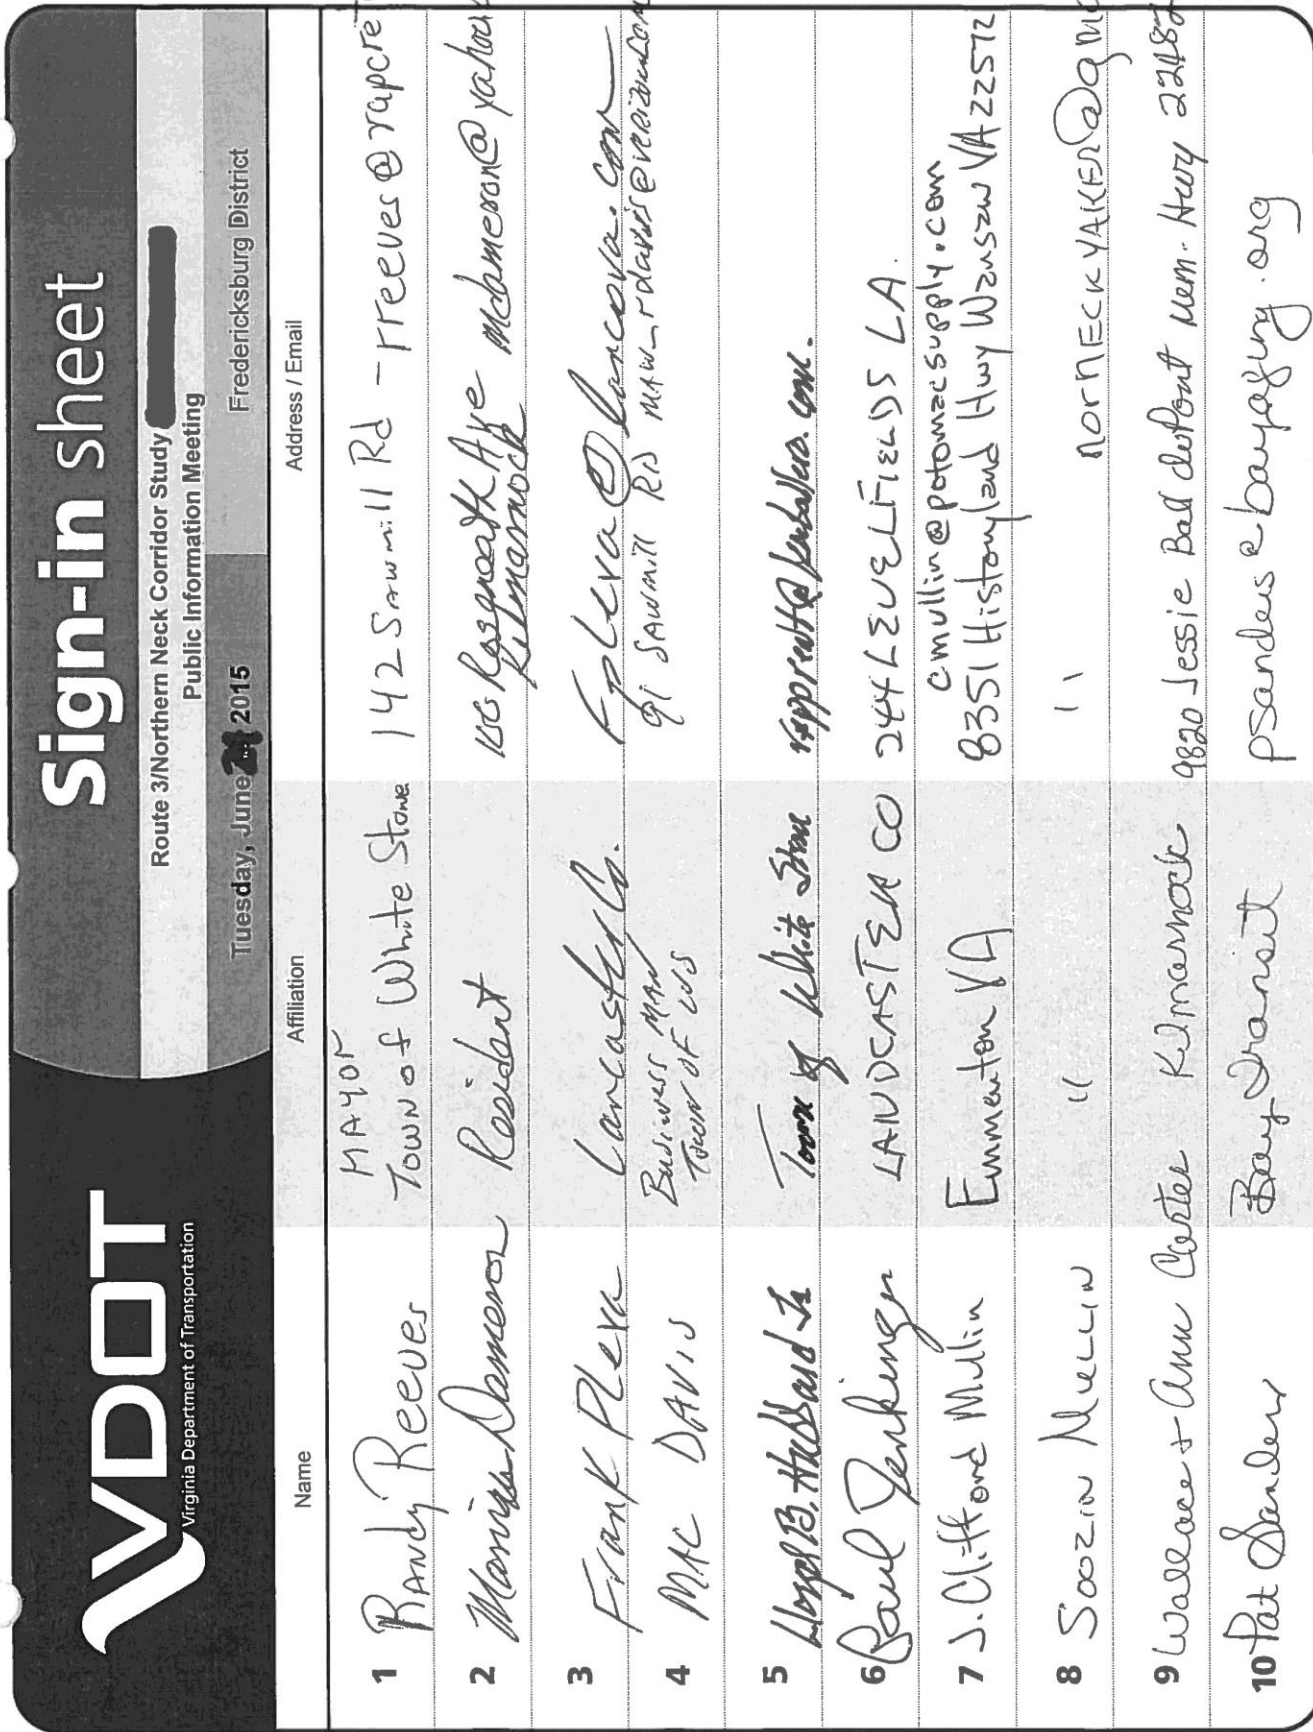 VDOT
Virginia Department of Transportation
Sign-in sheet
Route 3/Northern Neck Corridor Study
Public Information Meeting
Tuesday, June 2015
Fredericksburg District
Name Affiliation Address / Email
1 Randy Reeves MAYOR Town of White Stone 142 Sawmill Rd - rreeves@rapcre
2 Dameron Resident Ave Kilmarnock mdameron@yahoo
3 Frank Pleva Lancaster Co. fpleva@lancova.com
4 MAC DAVIS Business MAN Town OF WS 91 SAWMILL RD
5 B. Hubbard Jr Town of White Stone
6 Paul LANDCASTER CO 244 LEVELFIELDS LA.
7 J. Clifford Mullin Emmerton VA cmullin@potomacsupply.com
8351 Historyland Hwy Warsaw VA 22572
8 Soozin Mullin " " NORTHECKYAKER@gm
9 Wallace + Ann Carter Kilmarnock 9820 Jessie Ball duPont Mem. Hwy 22482
10 Pat Sanders Bay Transit psanders@bayaging.org